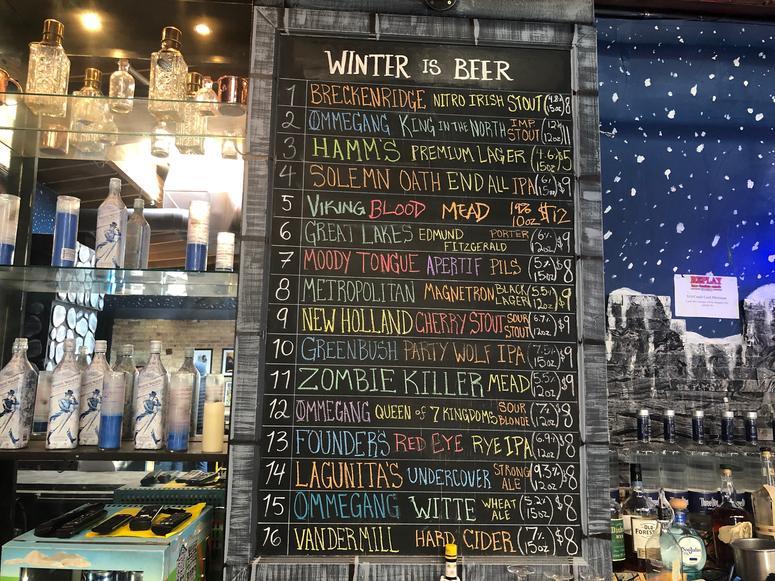 WINTER IS BEER
1 BRECKENRIDGE NITRO IRISH STOUT (4.8% 15oz) $8
2 ØMMEGANG KING IN THE NORTH IMP. STOUT (12% 12oz) $11
3 HAMM'S PREMIUM LAGER (4.6% 15oz) $5
4 SOLEMN OATH END ALL IPA $9
5 VIKING BLOOD MEAD 19% 10oz $12
6 GREAT LAKES EDMUND FITZGERALD PORTER (6% 12oz) $9
7 MOODY TONGUE APERTIF PILS (5% 15oz) $8
8 METROPOLITAN MAGNETRON BLACK LAGER (5.5% 12oz) $9
9 NEW HOLLAND CHERRY STOUT SOUR STOUT (6.7% 12oz) $9
10 GREENBUSH PARTY WOLF IPA (7.5% 15oz) $9
11 ZOMBIE KILLER MEAD (5.5% 12oz) $9
12 ØMMEGANG QUEEN OF 7 KINGDOMS SOUR BLONDE (7% 12oz) $8
13 FOUNDER'S RED EYE RYE IPA (6.9% 12oz) $8
14 LAGUNITA'S UNDERCOVER STRONG ALE (9.3% 12oz) $8
15 OMMEGANG WITTE WHEAT ALE (5.2% 15oz) $8
16 VANDERMILL HARD CIDER (7% 15oz) $8
REPLAY
OLD FORESTER